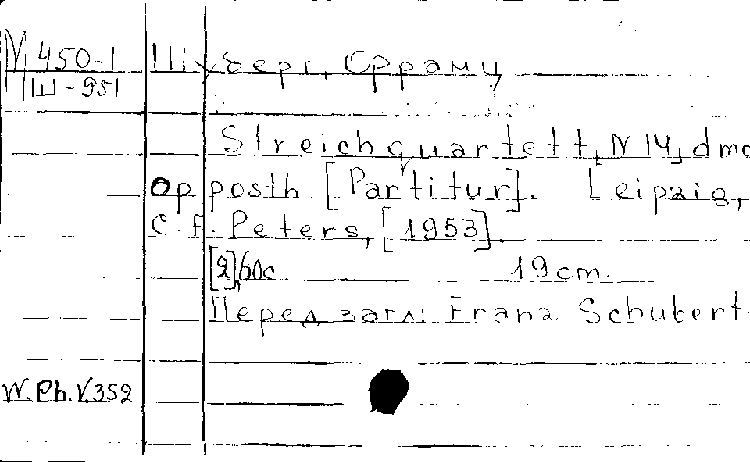 М 450-1 Шуберт, Франц
Ш-951
Streichquartett, N 14, d moll
Op posth [Partitur]. Leipzig,
C. F. Peters, [1953].
[2], 60с 19 cm.
Перед загл: Franz Schubert.
W.Ph.V.352